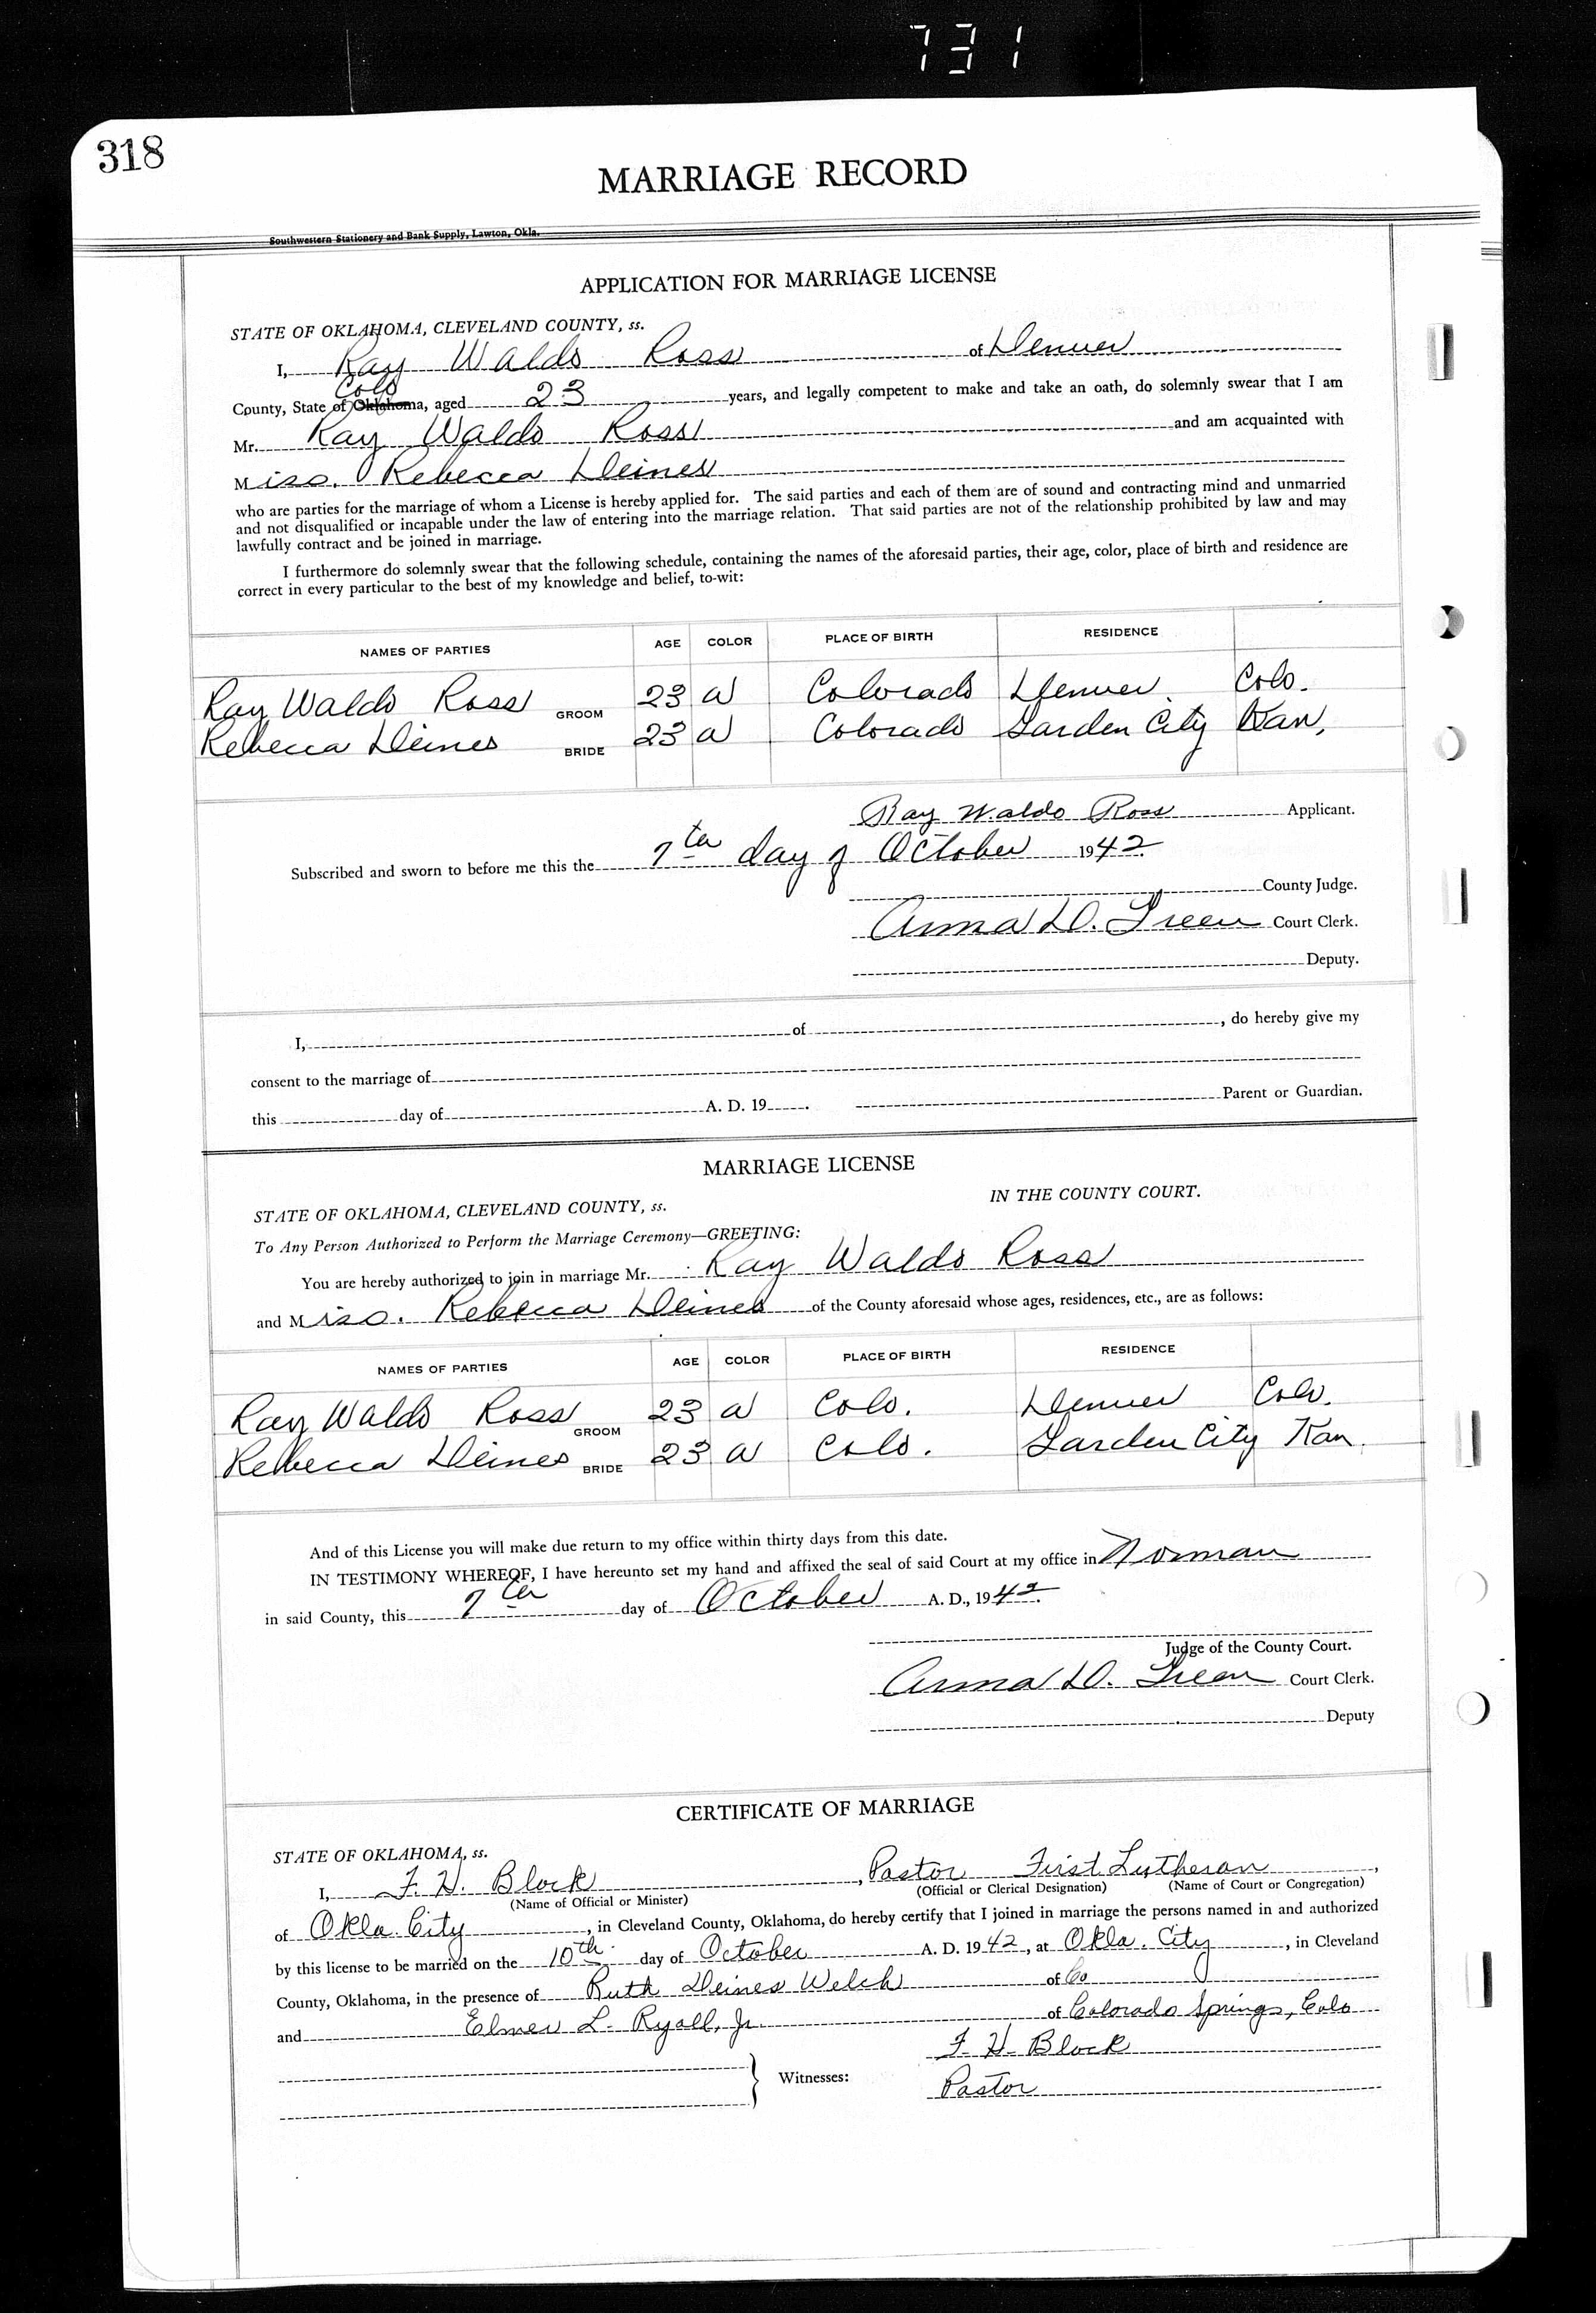 731
318
MARRIAGE RECORD
Southwestern Stationery and Bank Supply, Lawton, Okla.
APPLICATION FOR MARRIAGE LICENSE
STATE OF OKLAHOMA, CLEVELAND COUNTY, ss.
I, Ray Waldo Ross of Denver
Colo
County, State of Oklahoma, aged 23 years, and legally competent to make and take an oath, do solemnly swear that I am
Mr. Ray Waldo Ross and am acquainted with
Miss. Rebecca Deines
who are parties for the marriage of whom a License is hereby applied for. The said parties and each of them are of sound and contracting mind and unmarried
and not disqualified or incapable under the law of entering into the marriage relation. That said parties are not of the relationship prohibited by law and may
lawfully contract and be joined in marriage.
I furthermore do solemnly swear that the following schedule, containing the names of the aforesaid parties, their age, color, place of birth and residence are
correct in every particular to the best of my knowledge and belief, to-wit:
NAMES OF PARTIES AGE COLOR PLACE OF BIRTH RESIDENCE
Ray Waldo Ross GROOM 23 W Colorado Denver. Colo.
Rebecca Deines BRIDE 23 W Colorado Garden City Kan,
Ray Waldo Ross Applicant.
Subscribed and sworn to before me this the 7th day of October 1942
County Judge.
Anna D. Green Court Clerk.
Deputy.
I, of , do hereby give my
consent to the marriage of
this day of A. D. 19 .
Parent or Guardian.
MARRIAGE LICENSE
STATE OF OKLAHOMA, CLEVELAND COUNTY, ss. IN THE COUNTY COURT.
To Any Person Authorized to Perform the Marriage Ceremony—GREETING:
You are hereby authorized to join in marriage Mr. Ray Waldo Ross
and Miss. Rebecca Deines of the County aforesaid whose ages, residences, etc., are as follows:
NAMES OF PARTIES AGE COLOR PLACE OF BIRTH RESIDENCE
Ray Waldo Ross GROOM 23 W Colo. Denver Colo.
Rebecca Deines BRIDE 23 W Colo. Garden City Kan.
And of this License you will make due return to my office within thirty days from this date.
IN TESTIMONY WHEREOF, I have hereunto set my hand and affixed the seal of said Court at my office in Norman
in said County, this 7th day of October A. D., 1942
Judge of the County Court.
Anna D. Green Court Clerk.
Deputy
CERTIFICATE OF MARRIAGE
STATE OF OKLAHOMA, ss.
I, F. H. Block , Pastor First Lutheran ,
(Name of Official or Minister) (Official or Clerical Designation) (Name of Court or Congregation)
of Okla. City , in Cleveland County, Oklahoma, do hereby certify that I joined in marriage the persons named in and authorized
by this license to be married on the 10th day of October A. D. 1942, at Okla. City , in Cleveland
County, Oklahoma, in the presence of Ruth Deines Welch of Co
and Elmer L. Ryall, Jr. of Colorado Springs, Colo
F. H. Block
Witnesses:
Pastor